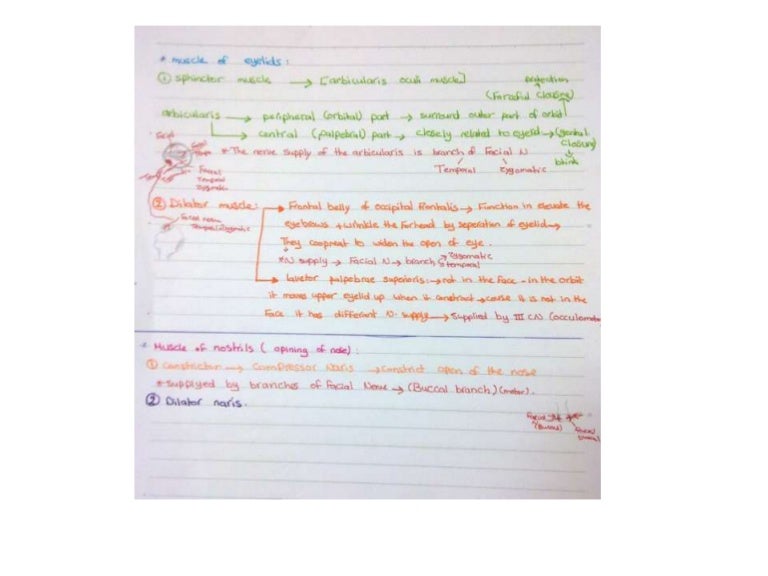 * muscle of eyelids:
① sphincter muscle → [arbicularis oculi muscle]
protection
(Forcful closing)
arbicularis → peripheral (orbital) part → surround outer part of orbit
→ central (palpebral) part → closely related to eyelid → (gentul closing)
blink
* The nerve supply of the arbicularis is branch of Facial N
Temporal Zygomatic
Facial
Temporal
Zygomatic
② Dilator muscle: → Frontal belly of occipital frontalis → Function in elevate the
eyebrows + wrinkle the forhead by seperation of eyelid →
They coopreat to widen the open of eye.
*N supply → Facial N → branch zygomatic
temporal
Facial nerve
→ lavetor palpebrae superioris: → not in the face - in the orbit
it moves upper eyelid up when it constract → cause it is not in the
Face it has different N. supply → Supplied by III CN (occulomotor
* Muscle of nostrils ( opining of nose) :
① constrictor → Compressor Naris → constrict open of the nose
* supplyed by branches of Facial Nerve → (Buccal branch) (motor).
② Dilator naris.
Facial
(Buccal)